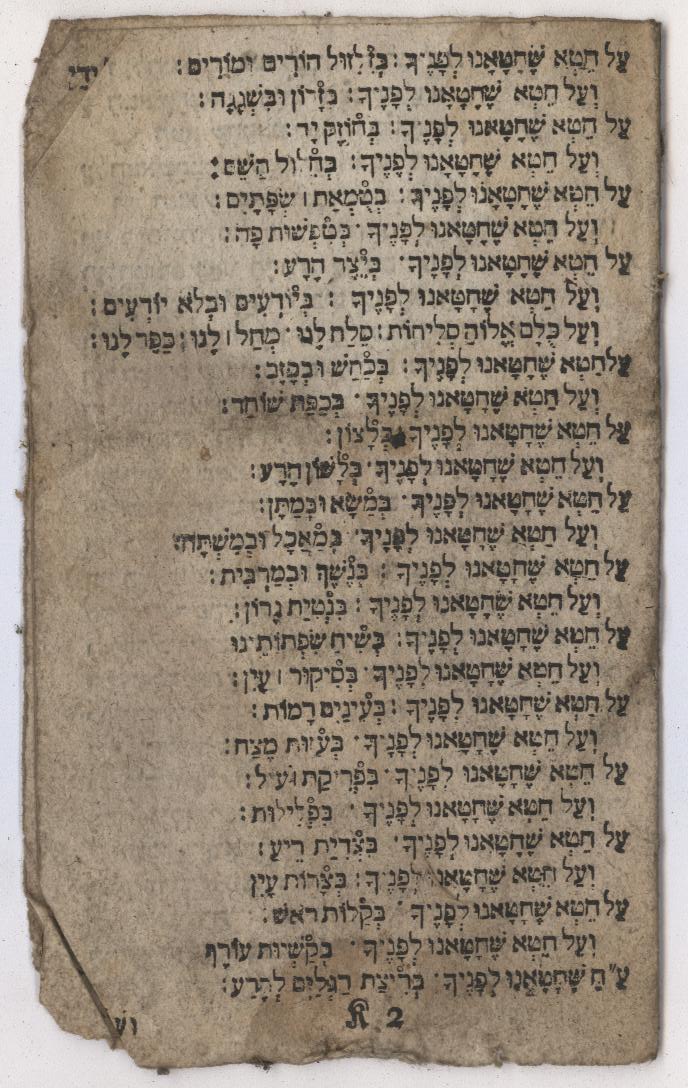 עַל חֵטְא שֶׁחָטָאנוּ לְפָנֶיךָ : בְּזִלְזוּל הוֹרִים וּמוֹרִים :
וְעַל חֵטְא שֶׁחָטָאנוּ לְפָנֶיךָ : בְּזָדוֹן וּבִשְׁגָגָה :
עַל חֵטְא שֶׁחָטָאנוּ לְפָנֶיךָ : בְּחוֹזֶק יָד :
וְעַל חֵטְא שֶׁחָטָאנוּ לְפָנֶיךָ : בְּחִלּוּל הַשֵּׁם :
עַל חֵטְא שֶׁחָטָאנוּ לְפָנֶיךָ : בְּטֻמְאַת ׀ שְׂפָתָיִם :
וְעַל חֵטְא שֶׁחָטָאנוּ לְפָנֶיךָ · בְּטִפְשׁוּת פֶּה :
עַל חֵטְא שֶׁחָטָאנוּ לְפָנֶיךָ · בְּיֵצֶר הָרָע :
וְעַל חֵטְא שֶׁחָטָאנוּ לְפָנֶיךָ : בְּיוֹדְעִים וּבְלֹא יוֹדְעִים :
וְעַל כֻּלָּם אֱלוֹהַ סְלִיחוֹת : סְלַח לָנוּ · מְחַל ׀ לָנוּ : כַּפֶּר לָנוּ :
עַל חֵטְא שֶׁחָטָאנוּ לְפָנֶיךָ : בְּכַחַשׁ וּבְכָזָב :
וְעַל חֵטְא שֶׁחָטָאנוּ לְפָנֶיךָ · בְּכַפַּת שׁוֹחַד :
עַל חֵטְא שֶׁחָטָאנוּ לְפָנֶיךָ בְּלָצוֹן :
וְעַל חֵטְא שֶׁחָטָאנוּ לְפָנֶיךָ · בְּלָשׁוֹן הָרָע :
עַל חֵטְא שֶׁחָטָאנוּ לְפָנֶיךָ · בְּמַשָּׂא וּבְמַתָּן :
וְעַל חֵטְא שֶׁחָטָאנוּ לְפָנֶיךָ · בְּמַאֲכָל וּבְמִשְׁתֶּה :
עַל חֵטְא שֶׁחָטָאנוּ לְפָנֶיךָ : בְּנֶשֶׁךְ וּבְמַרְבִּית :
וְעַל חֵטְא שֶׁחָטָאנוּ לְפָנֶיךָ : בִּנְטִיַת גָרוֹן :
עַל חֵטְא שֶׁחָטָאנוּ לְפָנֶיךָ : בְּשִׂיחַ שִׂפְתוֹתֵינוּ
וְעַל חֵטְא שֶׁחָטָאנוּ לְפָנֶיךָ · בְּסִיקוּר ׀ עָיִן :
עַל חֵטְא שֶׁחָטָאנוּ לְפָנֶיךָ : בְּעֵינַיִם רָמוֹת :
וְעַל חֵטְא שֶׁחָטָאנוּ לְפָנֶיךָ · בְּעַזּוּת מֶצַח :
עַל חֵטְא שֶׁחָטָאנוּ לְפָנֶיךָ · בִּפְרִיקַת עֹל :
וְעַל חֵטְא שֶׁחָטָאנוּ לְפָנֶיךָ · בִּפְלִילוּת :
עַל חֵטְא שֶׁחָטָאנוּ לְפָנֶיךָ · בִּצְדִיַת רֵיעַ :
וְעַל חֵטְא שֶׁחָטָאנוּ לְפָנֶיךָ : בְּצָרוּת עָיִן
עַל חֵטְא שֶׁחָטָאנוּ לְפָנֶיךָ · בְּקַלּוּת רֹאשׁ :
וְעַל חֵטְא שֶׁחָטָאנוּ לְפָנֶיךָ · בְּקַשְׁיוּת עוֹרֶף
ע"ח שֶׁחָטָאנוּ לְפָנֶיךָ · בְּרִיצַת רַגְלַיִם לְהָרַע :
2